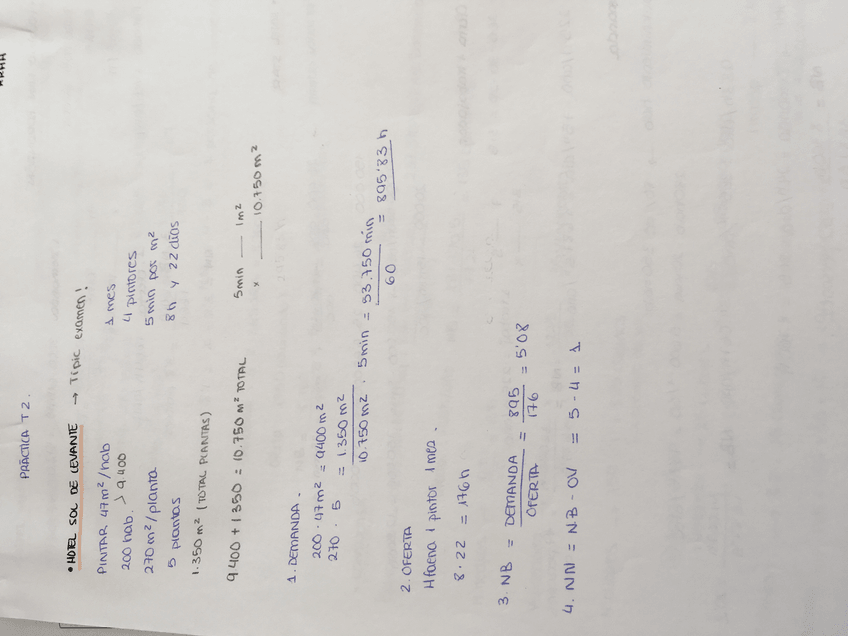 PRÀCTICA T2.
• HOTEL SOL DE LLEVANTE → Típic examen!
PINTAR 47m²/hab
200 hab. > 9.400
270 m²/planta
5 plantas
1 mes
4 pintores
5 min por m²
8h y 22 días
1.350 m² (TOTAL PLANTAS)
9400 + 1350 = 10.750 m² TOTAL
5min — 1m²
x — 10.750 m²
1. DEMANDA.
200 · 47m² = 9400 m²
270 · 5 = 1.350 m²
10.750 m² · 5min = 53.750 min / 60 = 895'83 h
2. OFERTA
H faena 1 pintor 1 mes.
8 · 22 = 176h
3. NB = DEMANDA / OFERTA = 895 / 176 = 5'08
4. NN = NB - OV = 5 - 4 = 1